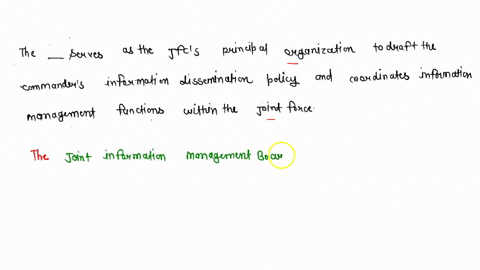 The __ serves as the JFC's principal organization to draft the
commander's information dissemination policy and coordinates information
management functions within the joint force.
The Joint information management Boar